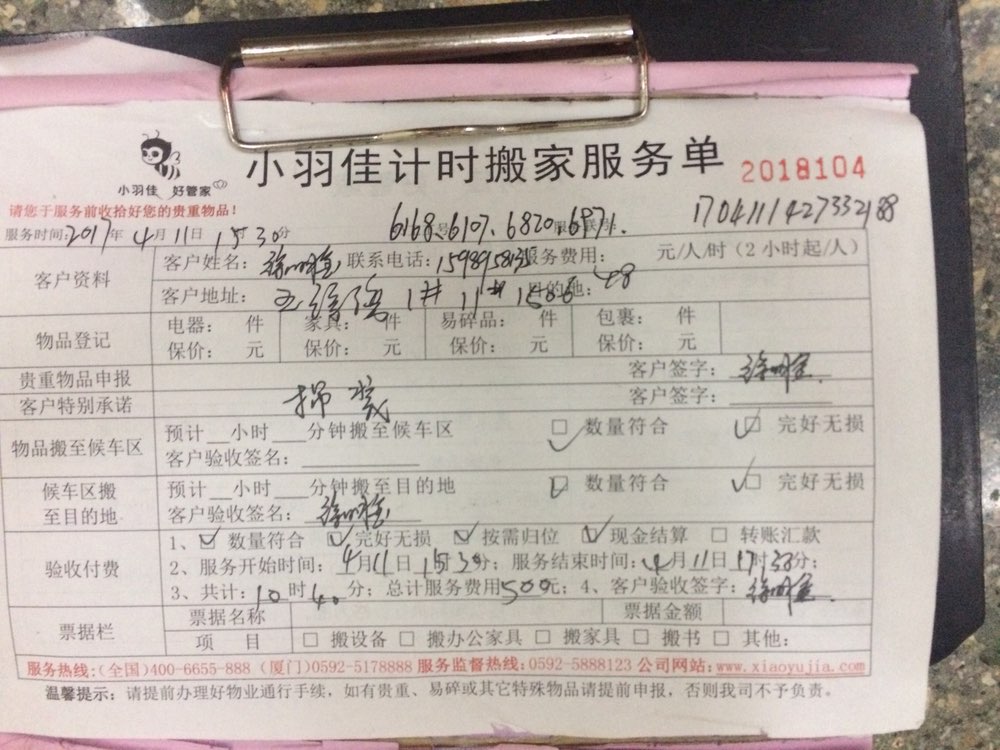 小羽佳计时搬家服务单 2018104
小羽佳 好管家
请您于服务前收拾好您的贵重物品！
服务时间：2017年 4月11日 15 30分 6168、6107、6820、6971. 1704111427332188
客户资料
客户姓名： 联系电话： 服务费用： 元/人/时（2小时起/人）
客户地址： 1# 11# 目的地：
物品登记
电器： 件 家具： 件 易碎品： 件 包裹： 件
保价： 元 保价： 元 保价： 元 保价： 元
贵重物品申报 客户签字：
客户特别承诺 客户签字：
物品搬至候车区
预计__小时___分钟搬至候车区 □ 数量符合 □ 完好无损
客户验收签名：
候车区搬至目的地
预计__小时___分钟搬至目的地 □ 数量符合 □ 完好无损
客户验收签名：
验收付费
1、☑ 数量符合 ☑ 完好无损 ☑ 按需归位 ☑ 现金结算 □ 转账汇款
2、服务开始时间：4月11日 15时30分；服务结束时间：4月11日17时30分；
3、共计：10时40分；总计服务费用500元；4、客户验收签字：
票据栏
票据名称 票据金额
项 目 □ 搬设备 □ 搬办公家具 □ 搬家具 □ 搬书 □ 其他：
服务热线：(全国)400-6655-888 (厦门)0592-5178888 服务监督热线：0592-5888123 公司网站：www.xiaoyujia.com
温馨提示：请提前办理好物业通行手续，如有贵重、易碎或其它特殊物品请提前申报，否则我司不予负责。